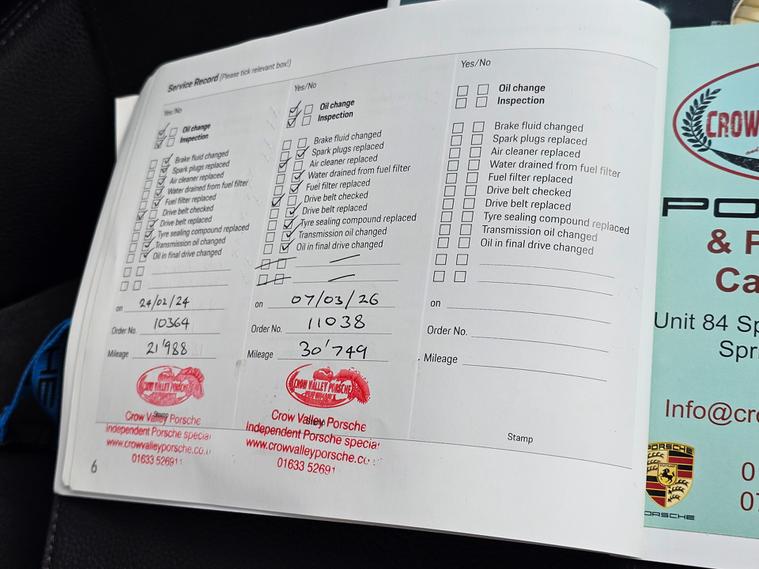 Service Record (Please tick relevant box!)
Yes/No
Oil change
Inspection
Brake fluid changed
Spark plugs replaced
Air cleaner replaced
Water drained from fuel filter
Fuel filter replaced
Drive belt checked
Drive belt replaced
Tyre sealing compound replaced
Transmission oil changed
Oil in final drive changed
on 24/02/24
Order No. 10364
Mileage 21'988
CROW VALLEY PORSCHE
Crow Valley Porsche
Independent Porsche special
www.crowvalleyporsche.co.
01633 52691
6
Yes/No
Oil change
Inspection
Brake fluid changed
Spark plugs replaced
Air cleaner replaced
Water drained from fuel filter
Fuel filter replaced
Drive belt checked
Drive belt replaced
Tyre sealing compound replaced
Transmission oil changed
Oil in final drive changed
on 07/03/26
Order No. 11038
Mileage 30'749
CROW VALLEY PORSCHE
Crow Valley Porsche
Independent Porsche special
www.crowvalleyporsche.co.
01633 52691
Yes/No
Oil change
Inspection
Brake fluid changed
Spark plugs replaced
Air cleaner replaced
Water drained from fuel filter
Fuel filter replaced
Drive belt checked
Drive belt replaced
Tyre sealing compound replaced
Transmission oil changed
Oil in final drive changed
on
Order No.
Mileage
Stamp
CROW
PO
& P
Ca
Unit 84 Sp
Spr
Info@cro
PORSCHE
0
07